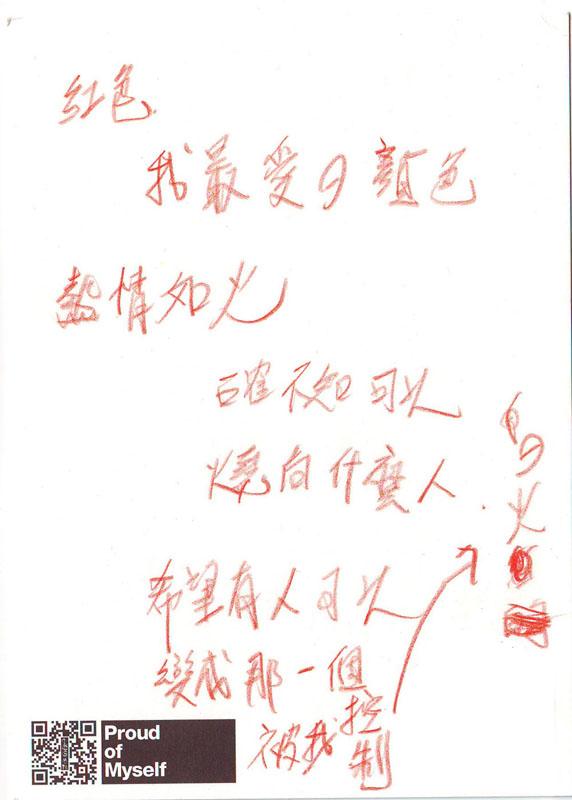 紅色
我最愛の顏色
熱情如火
確不知可以
燒向什麼人
希望有人可以
變成那一個
被我控制
の火
Proud
of
Myself